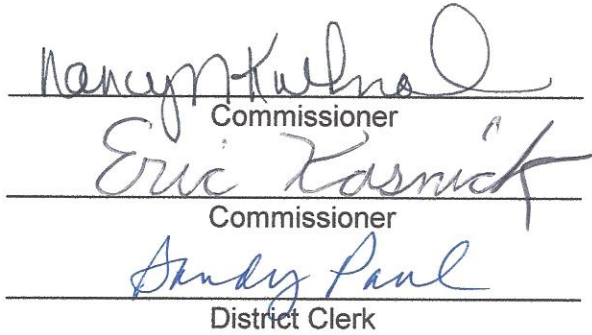 Nancy
Commissioner
Eric Kosnick
Commissioner
Sandy Paul
District Clerk